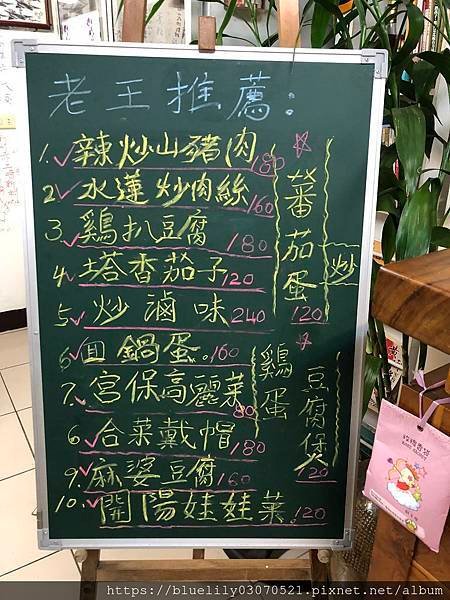 老王推薦：
1.✓辣炒山豬肉180
2✓水蓮炒肉絲160
3.✓鷄扒豆腐180
4.✓塔香茄子120
5.✓炒滷味240
6✓回鍋蛋.160
7.✓宮保高麗菜80
6.✓合菜戴帽180
9.✓麻婆豆腐160
10.✓開陽娃娃菜.120
☆蕃茄蛋120
炒
☆豆腐保120
鷄蛋
https://bluelily03070521.pixnet.net/album